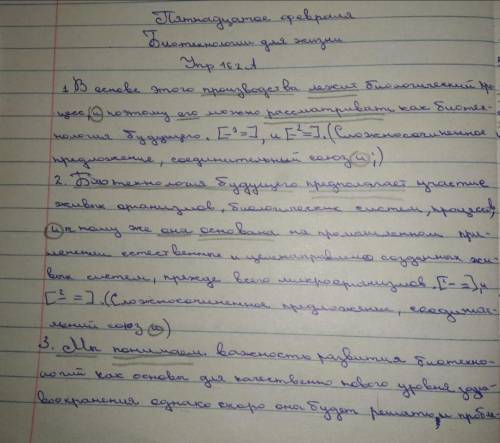 Пятнадцатое февраля
Биотехнологии для жизни
Упр 162А
1. В основе этого производства лежит биологический про-
цесс, и поэтому его можно рассматривать как биотех-
нология будущего. [– =], и [– =]. (Сложносочиненное
предложение, соединительный союз и;)
2. Биотехнология будущего предполагает участие
живых организмов, биологических систем, процессов,
и к тому же она основана на промышленном при-
менении естественных и целенаправленно созданных жи-
вых систем, прежде всего микроорганизмов. [– =], и
[– =]. (Сложносочиненное предложение, соедини-
тельный союз и)
3. Мы понимаем важность развития биотехно-
логий как основы для качественно нового уровня здра-
воохранения однако скоро она будет решать, и пробле-